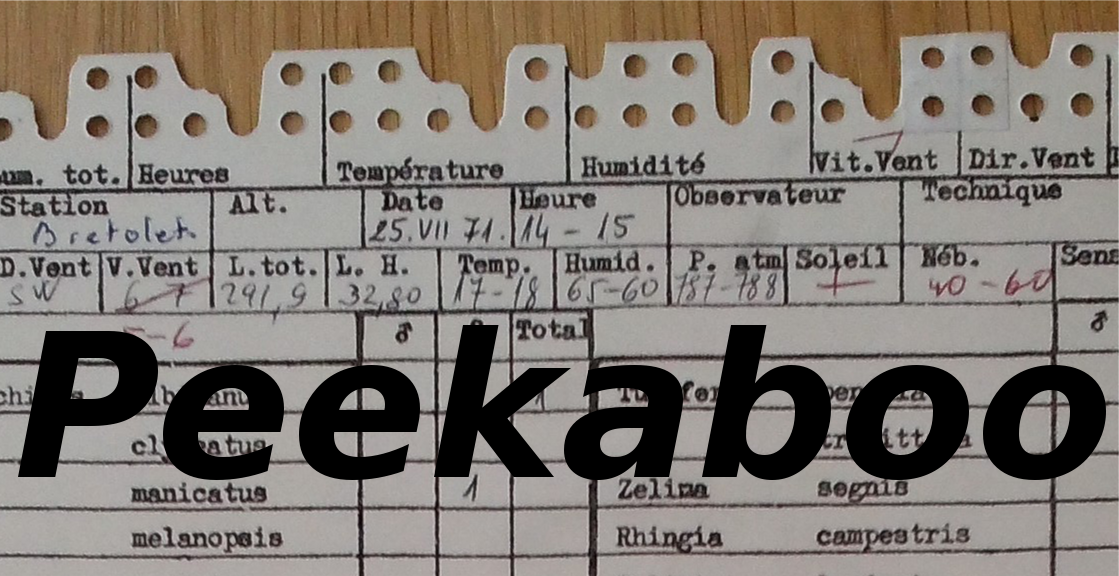 um. tot. Heures Température Humidité Vit.Vent Dir.Vent
Station Alt. Date Heure Observateur Technique
Bretolet 25.VII 71. 14 - 15
D.Vent V.Vent L.tot. L. H. Temp. Humid. P. atm Soleil Néb. Sens
SW 6-7 291,9 32,80 17-18 65-60 787-788 + 40-60
5-6 ♂ Total ♂
1
Peekaboo
manicatus 1 Zelima segnis
melanopsis Rhingia campestris